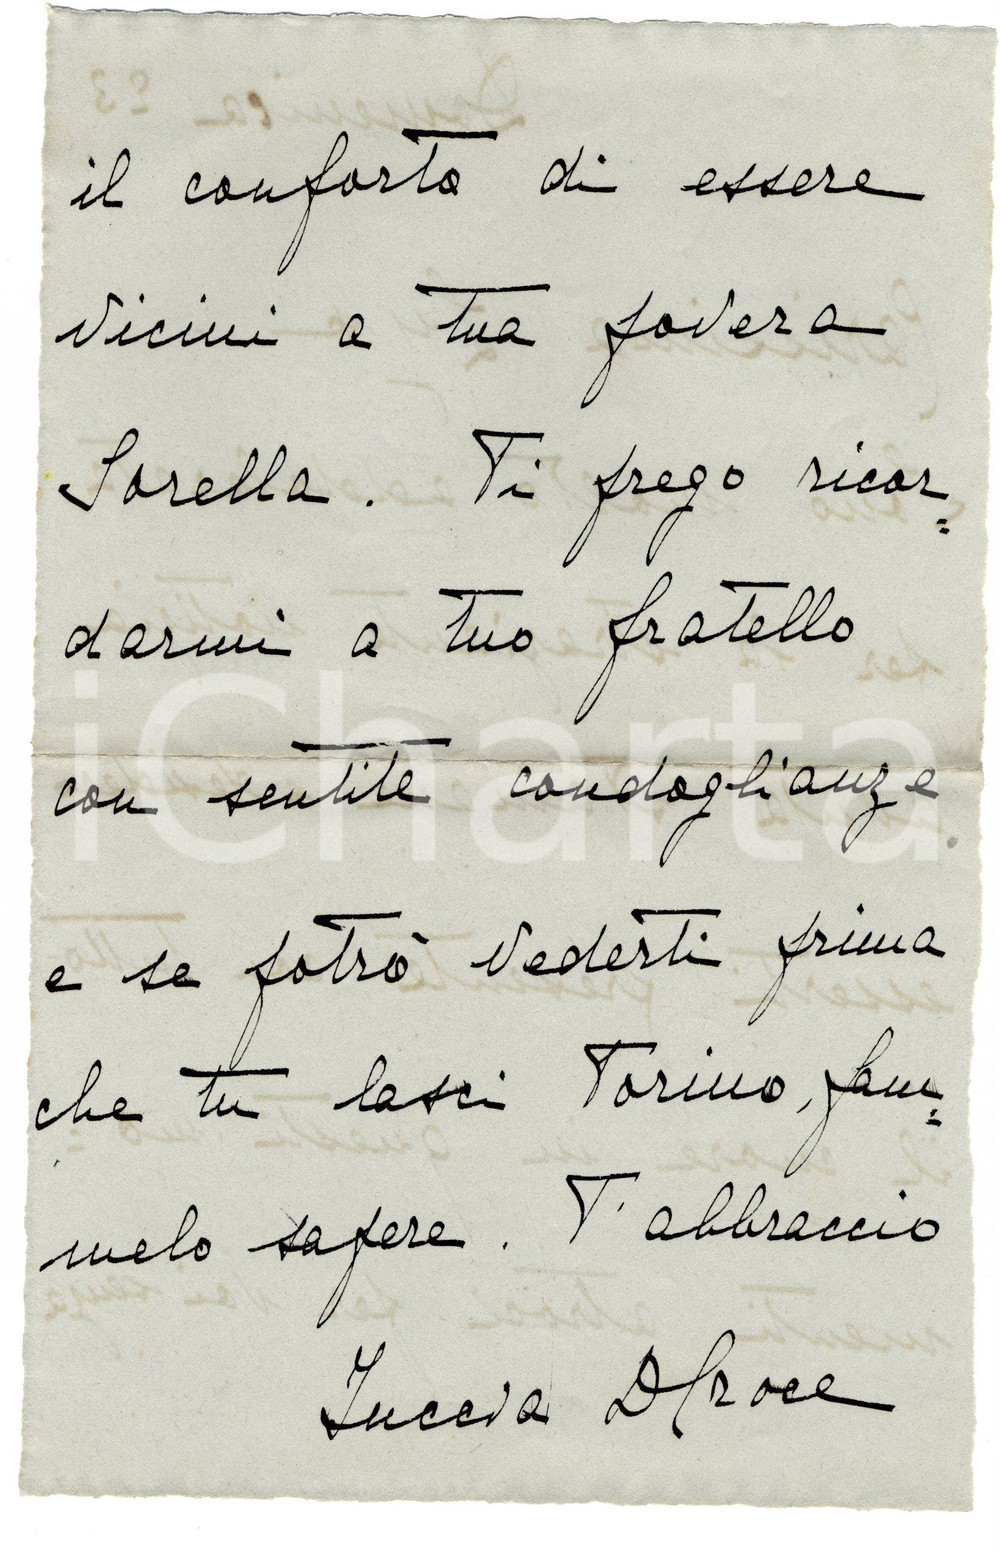 il conforto di essere
vicini a tua povera
Sorella. Ti prego ricor=
darmi a tuo fratello
con sentite condoglianze
e se potrò vederti prima
che tu lasci Torino, fam=
melo sapere. T'abbraccio
Croce
iCharta